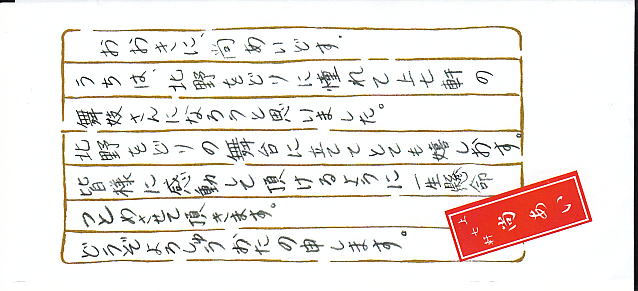 おおきに、尚あいどす。
うちは、北野をどりに憧れて上七軒の
舞妓さんになろうと思いました。
北野をどりの舞台に立ててとても嬉しおす。
皆様に感動して頂けるように一生懸命
つとめさせて頂きます。
どうぞよろしゅうおたの申します。
上七軒 尚あい